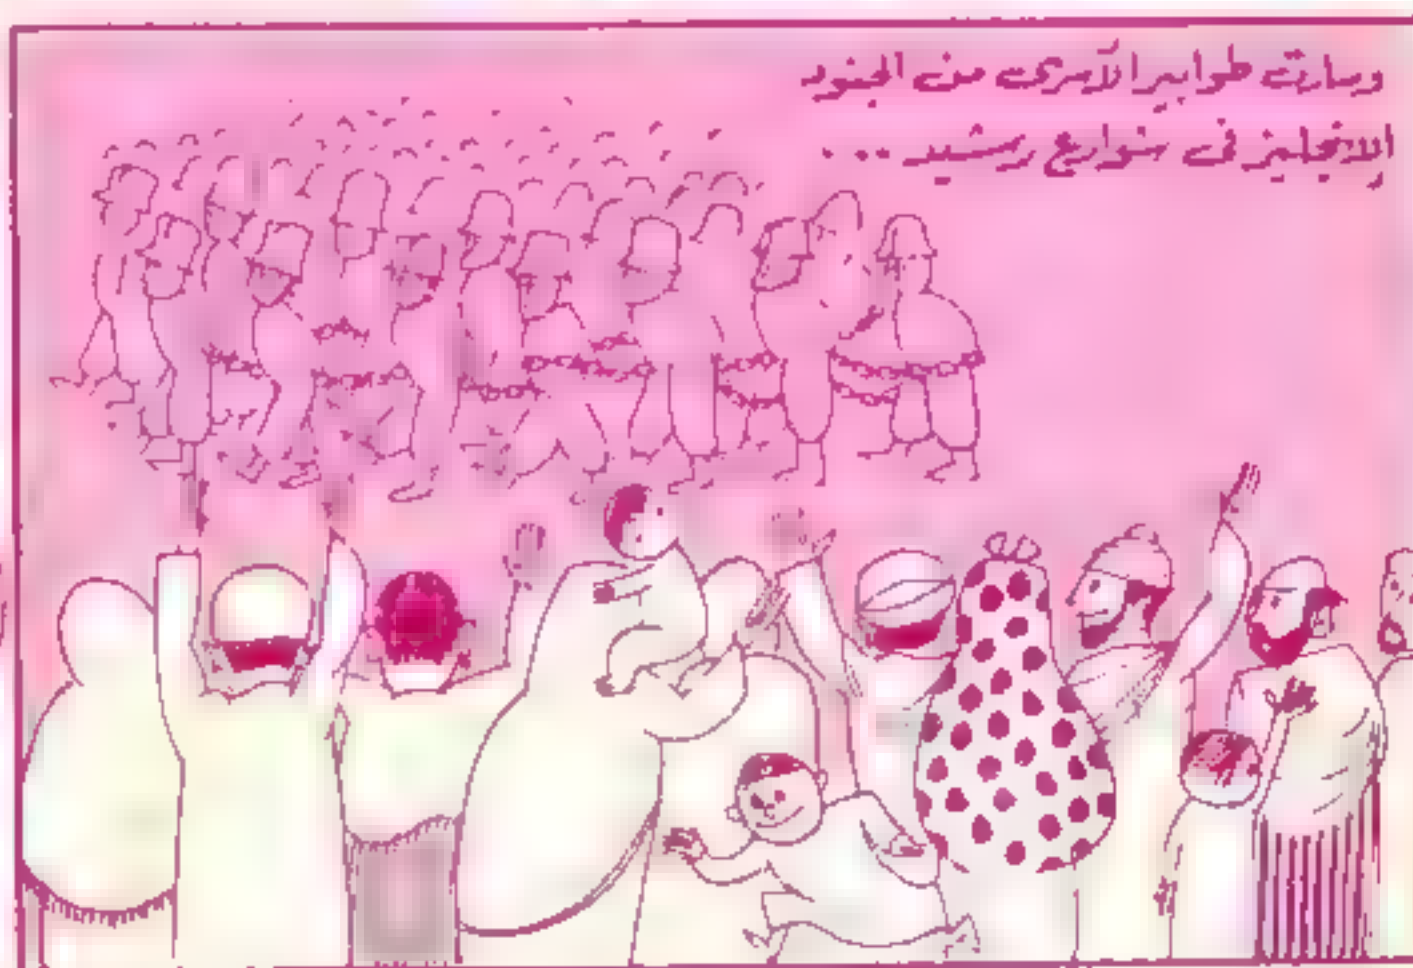 وسارت طوابير الأسرى من الجنود
الإنجليز فى شوارع رشيد ...